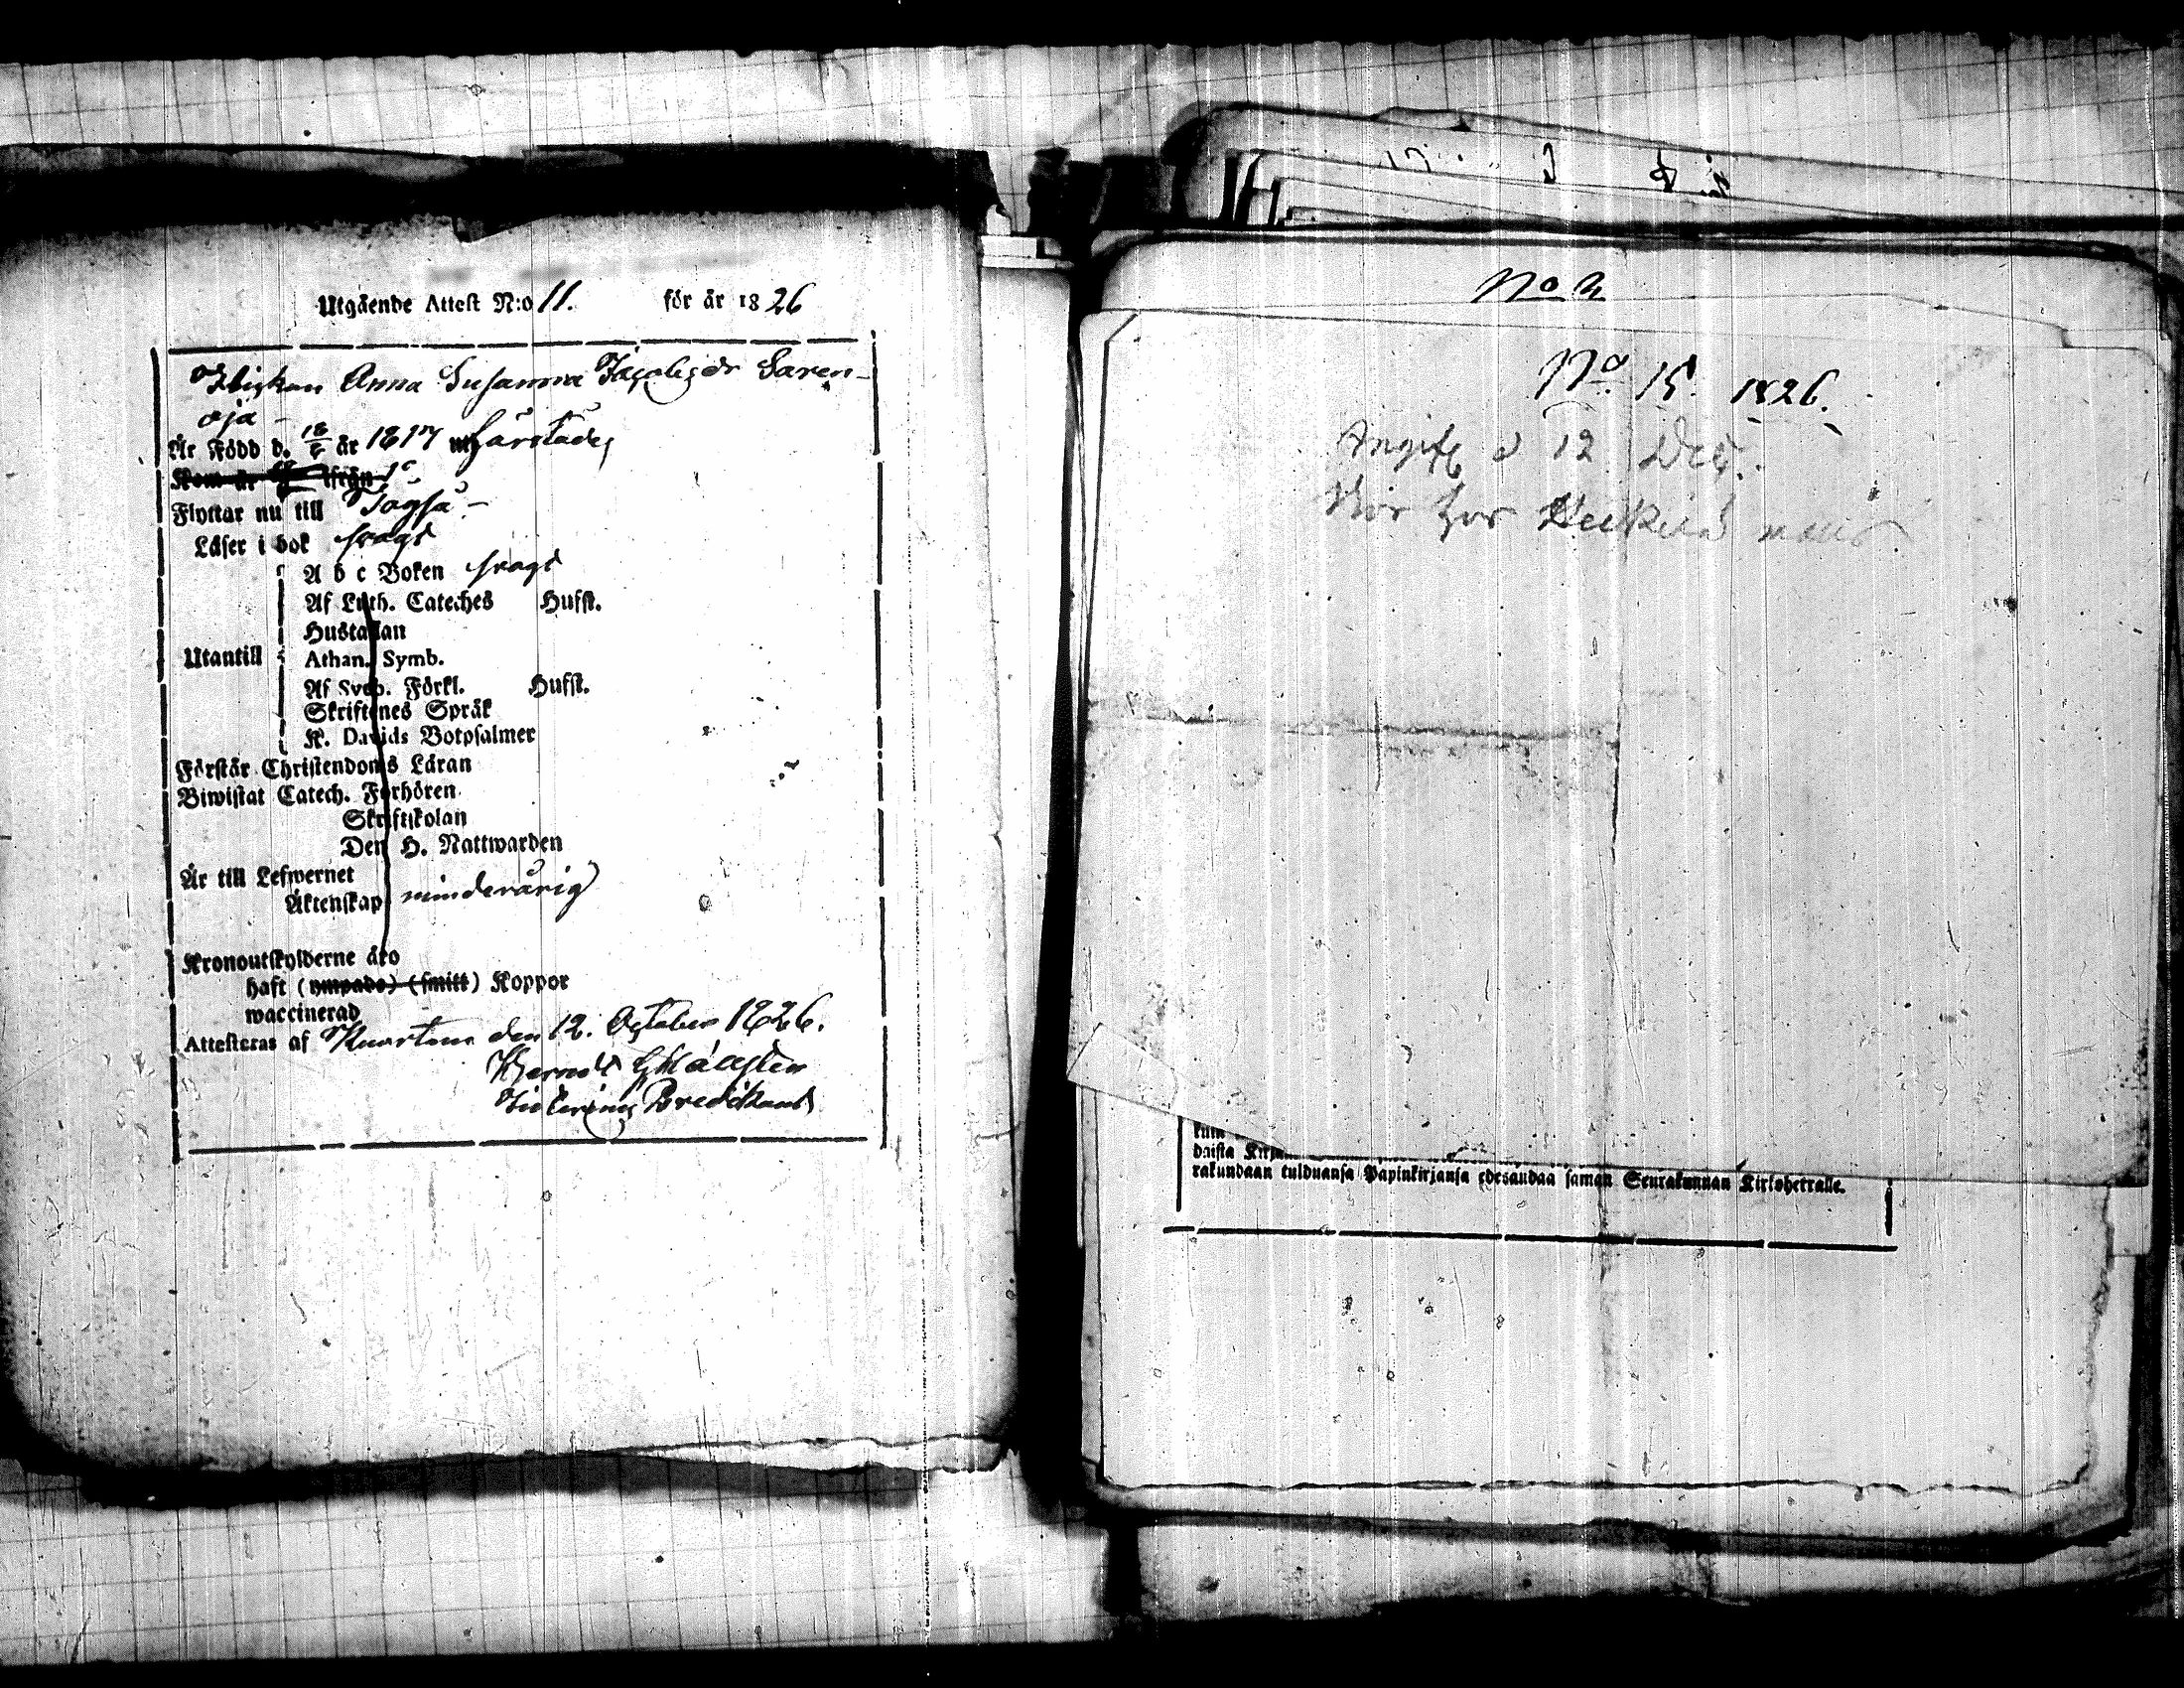 Utgående Attest N:o 11. för år 1826
Flickan Anna Susanna Jacobsdr Saren-
oja -
Är Född d. 18/6 år 1817 härstädes
Kom år ifrån
Flyttar nu till
Läser i bok svagt
A b c Boken svagt
Af Luth. Cateches Hufst.
Hustaflan
Utantill Athan. Symb.
Af Sveb. Förkl. Hufst.
Skriftenes Språk
K. Davids Botpsalmer
Förstår Christendoms Läran
Biwistat Catech. Förhören
Skriftskolan
Den H. Nattwarden
Är till Lefwernet
Äktenskap minderårig
Kronoutskylderne äro
haft (ympade) (smitt) Koppor
waccinerad
Attesteras af Kuortane den 12. October 1826.
Predikant
No 2
No 15. 1826.
12 Dec.
Bör hos
kuin
daista
rakundaan tulduansa Papinkirjansa edesandaa saman Seurakunnan Kirkoherralle.